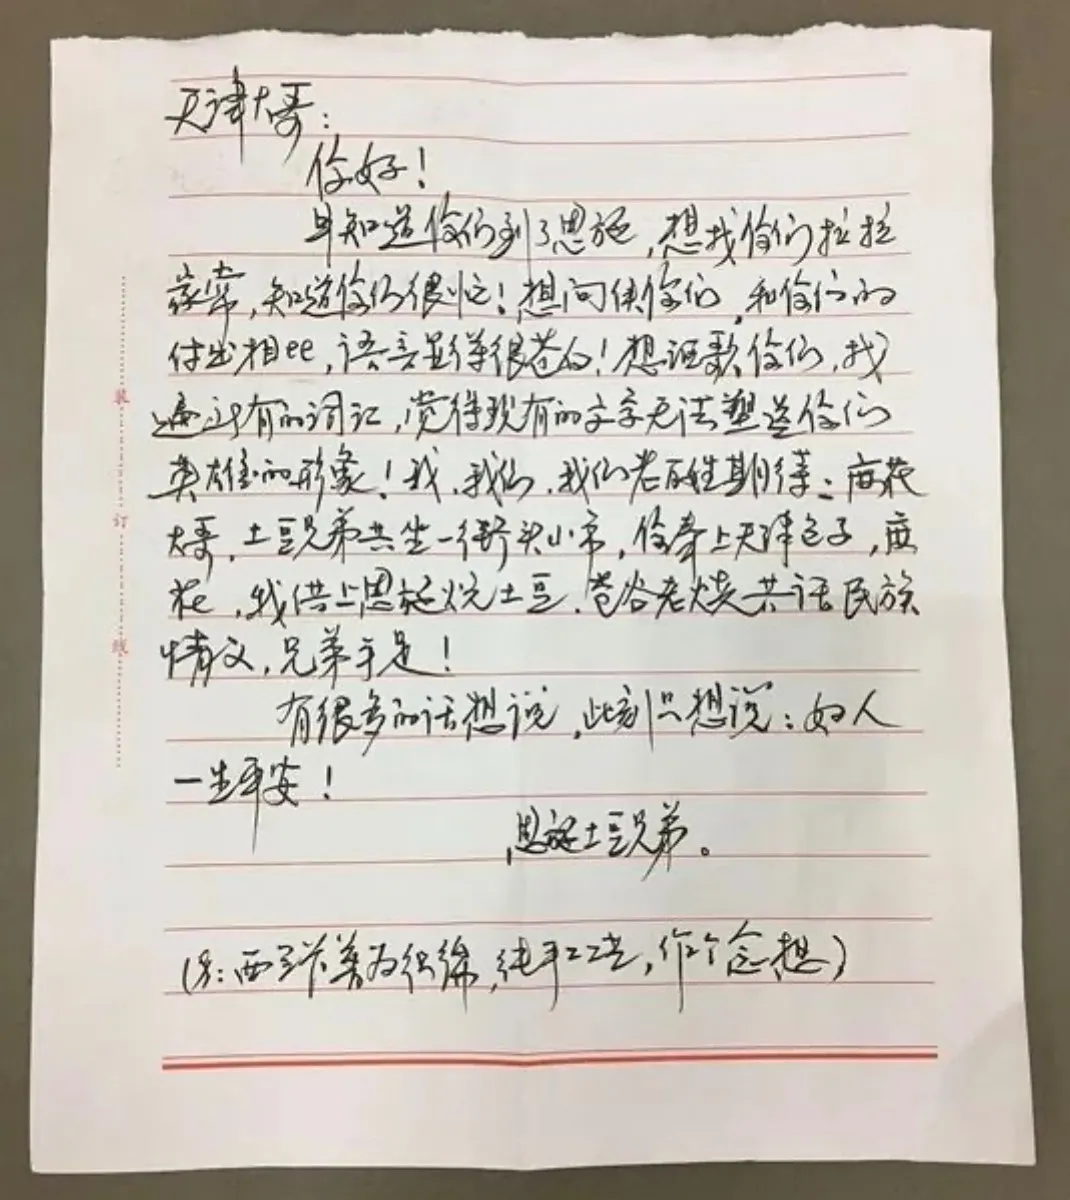 天津大哥：
你好！
早知道你们到了恩施，想找你们拉拉
家常，知道你们很忙！想问候你们，和你们的
付出相比，语言显得很苍白！想讴歌你们，找
遍所有的词汇，觉得现有的文字无法塑造你们
英雄的形象！我、我们、我们老百姓期待：麻花
大哥、土豆兄弟共坐一街头小市，你奉上天津包子，麻
花，我供上恩施炕土豆、苞谷老烧共话民族
情义，兄弟手足！
有很多的话想说，此刻只想说：好人
一生平安！
恩施土豆兄弟。
装
订
线
西兰卡普为织锦，纯手工艺，作个念想）